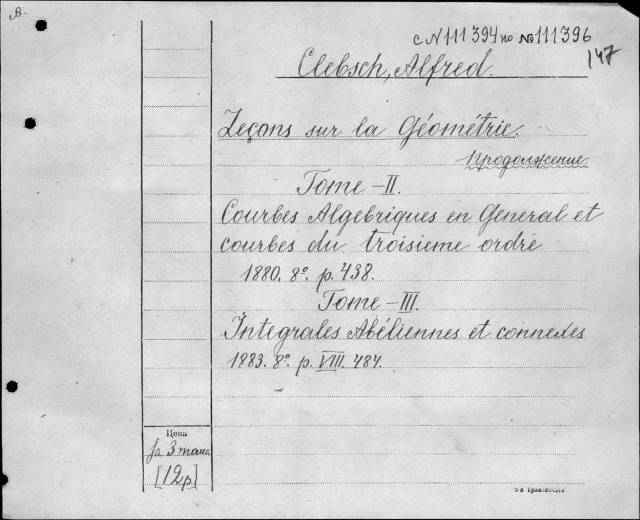 A.
с N 111394 по № 111396
147
Clebsch, Alfred.
Leçons sur la Géométrie.
Продолжение.
Tome -II.
Courbes Algebriques en General et
courbes du troisieme ordre
1880. 8º. p. 438.
Tome -III.
Integrales Abéliennes et connexes
1883. 8º. p. VIII. 484.
Цена
за 3 тома
[12р]